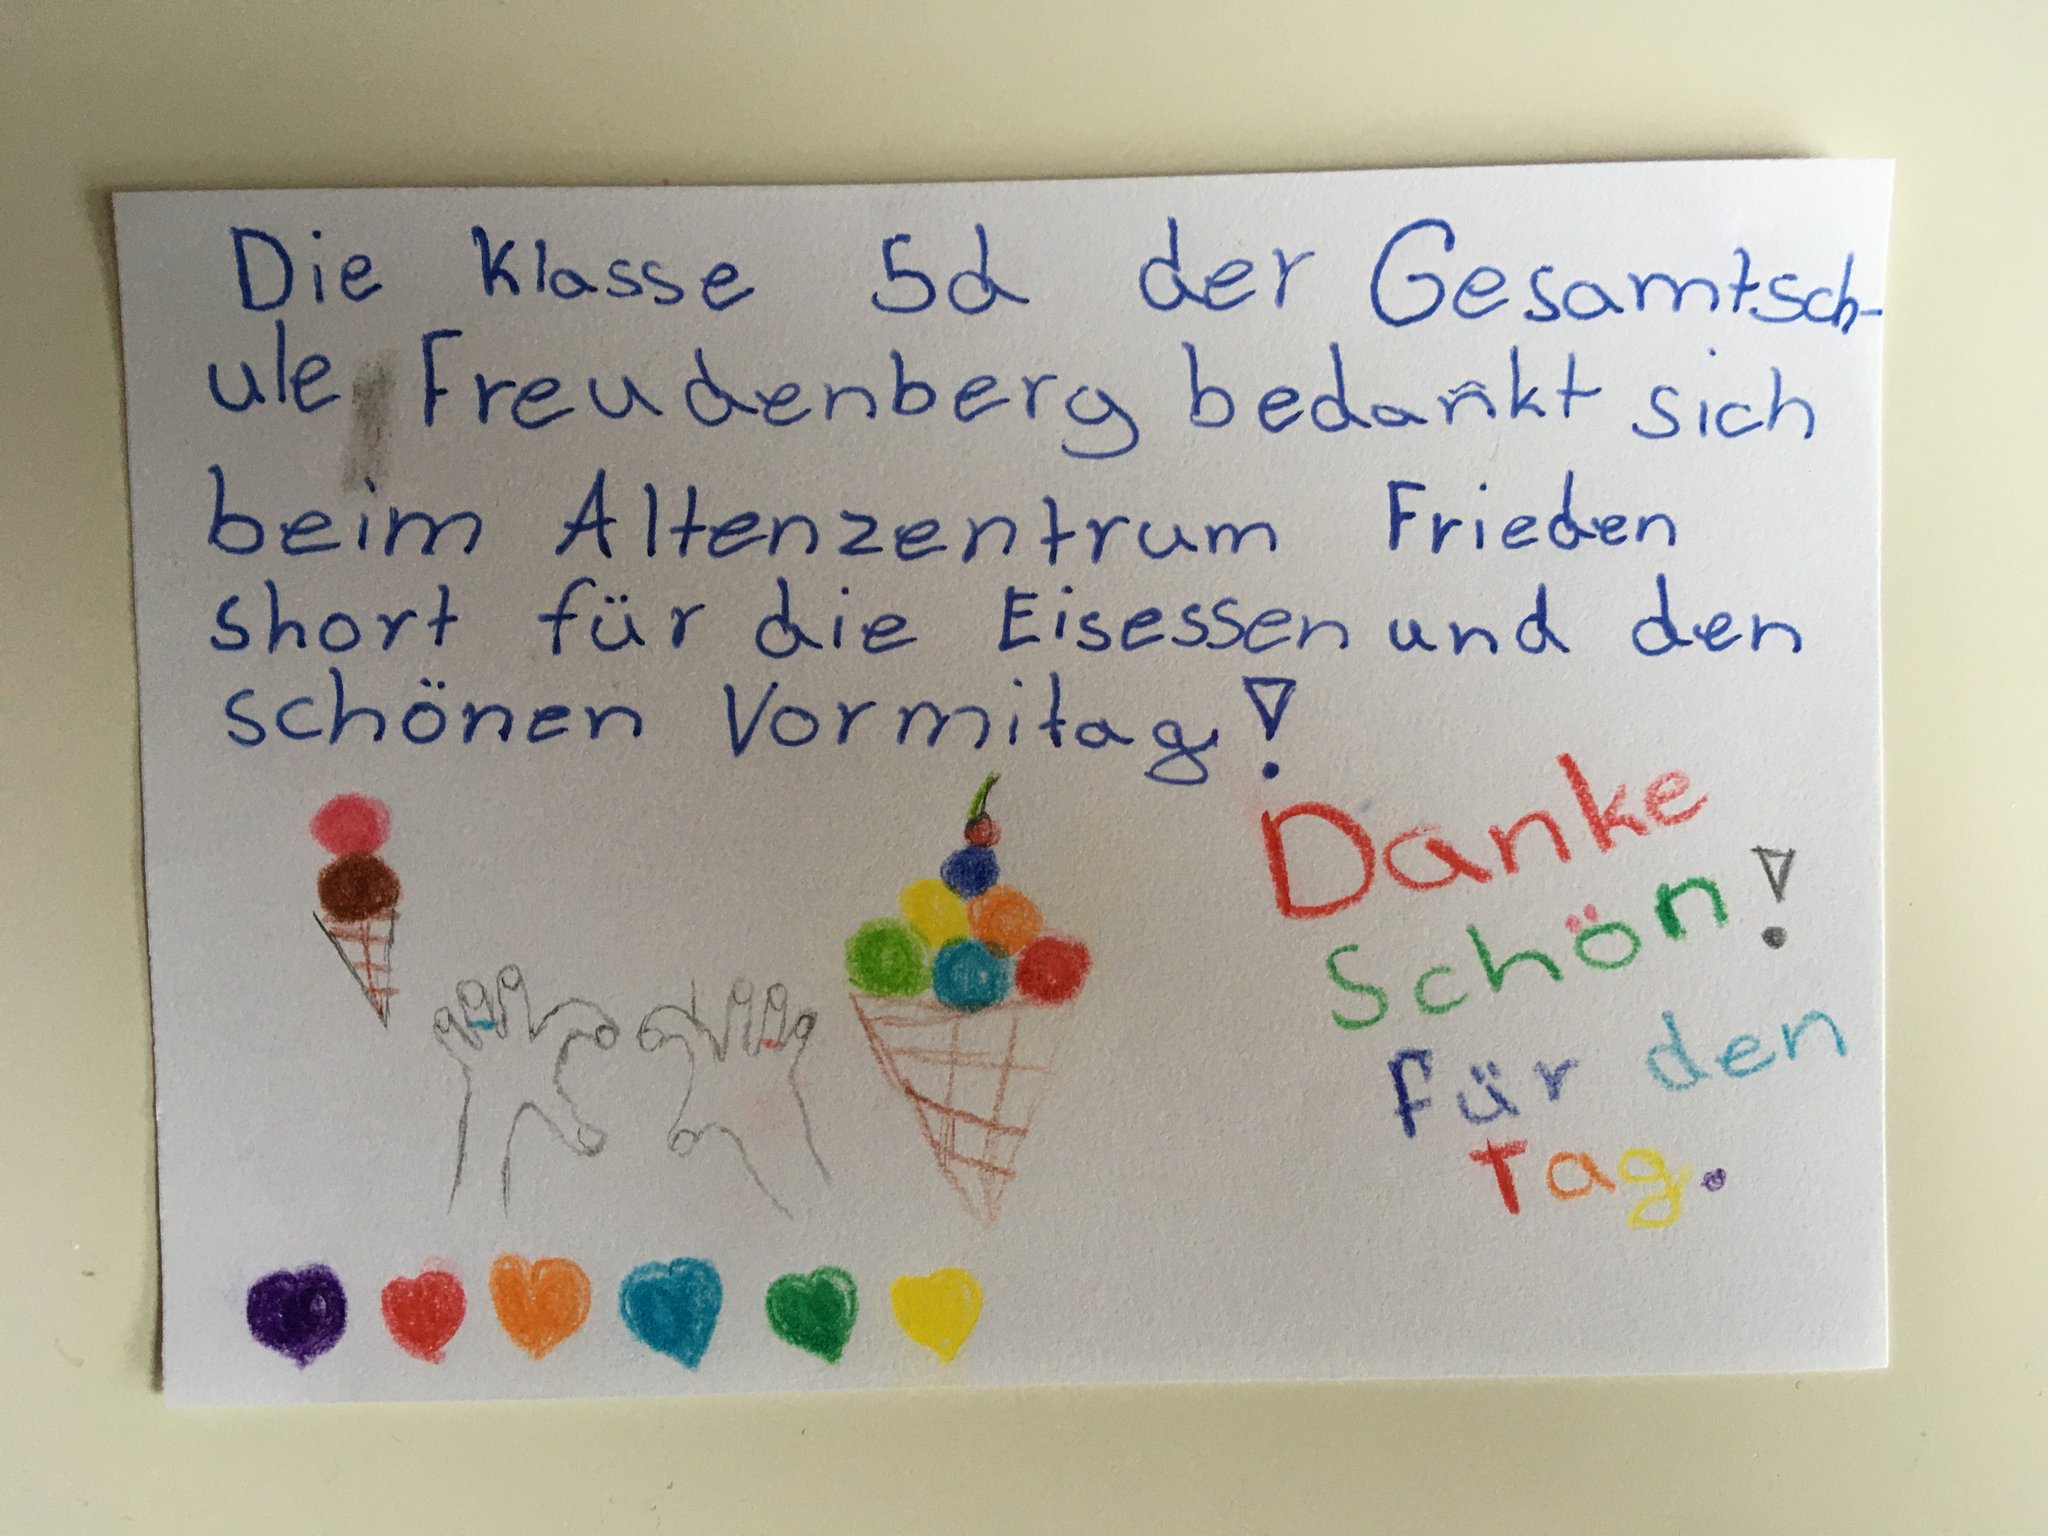 Die Klasse 5d der Gesamtsch-
ule Freudenberg bedankt sich
beim Altenzentrum Frieden
short für die Eisessen und den
schönen Vormitag!
Danke
Schön!
für den
Tag.